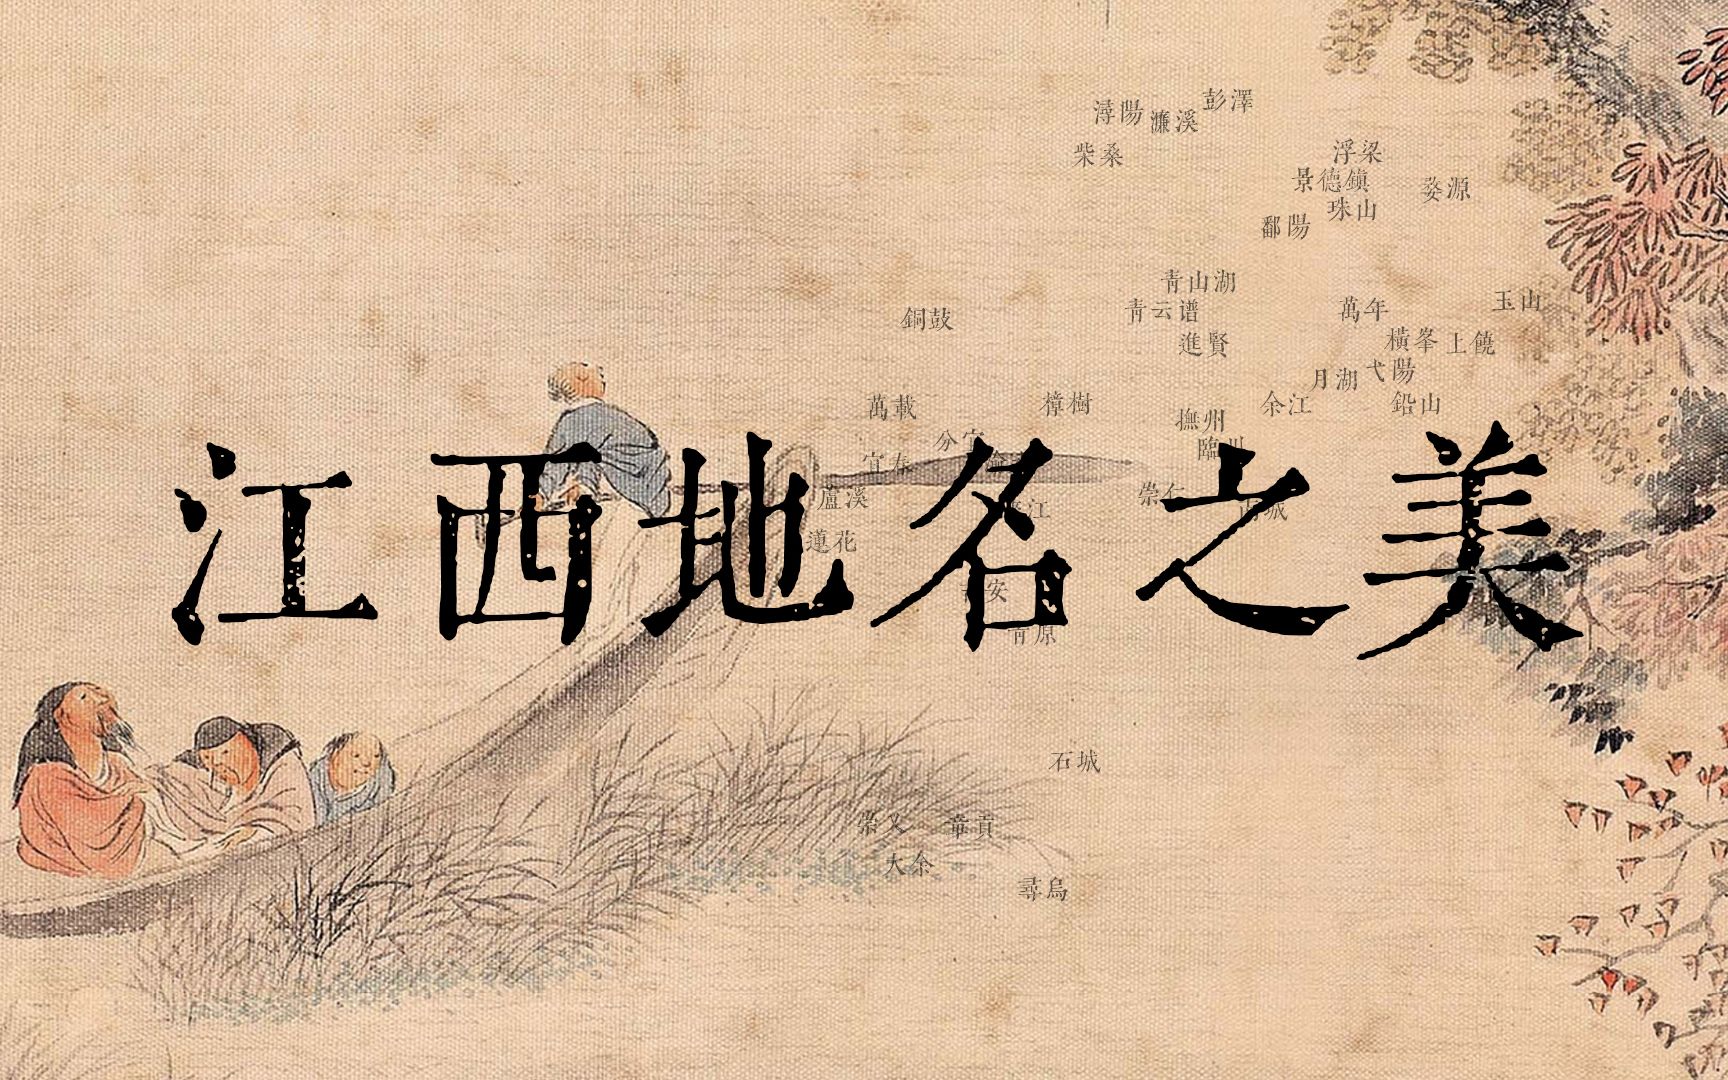 彭澤
潯陽
濂溪
柴桑
浮梁
景德鎮
婺源
珠山
鄱陽
青山湖
玉山
青云谱
萬年
銅鼓
進賢
橫峯
上饒
弋陽
月湖
萬載
樟樹
余江
鉛山
撫州
江西地名之美
宜春
蘆溪
蓮花
青原
石城
崇义
章貢
大余
尋烏